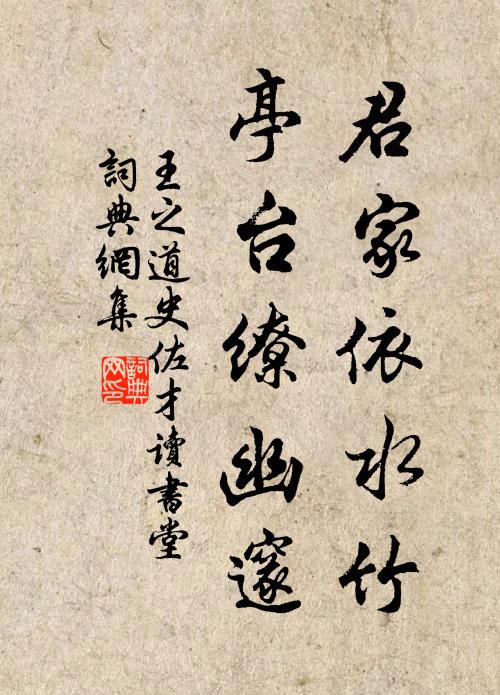 君家依水竹
亭台缭幽邃
王之道史佐才讀書堂
詞典網集
詞典网印